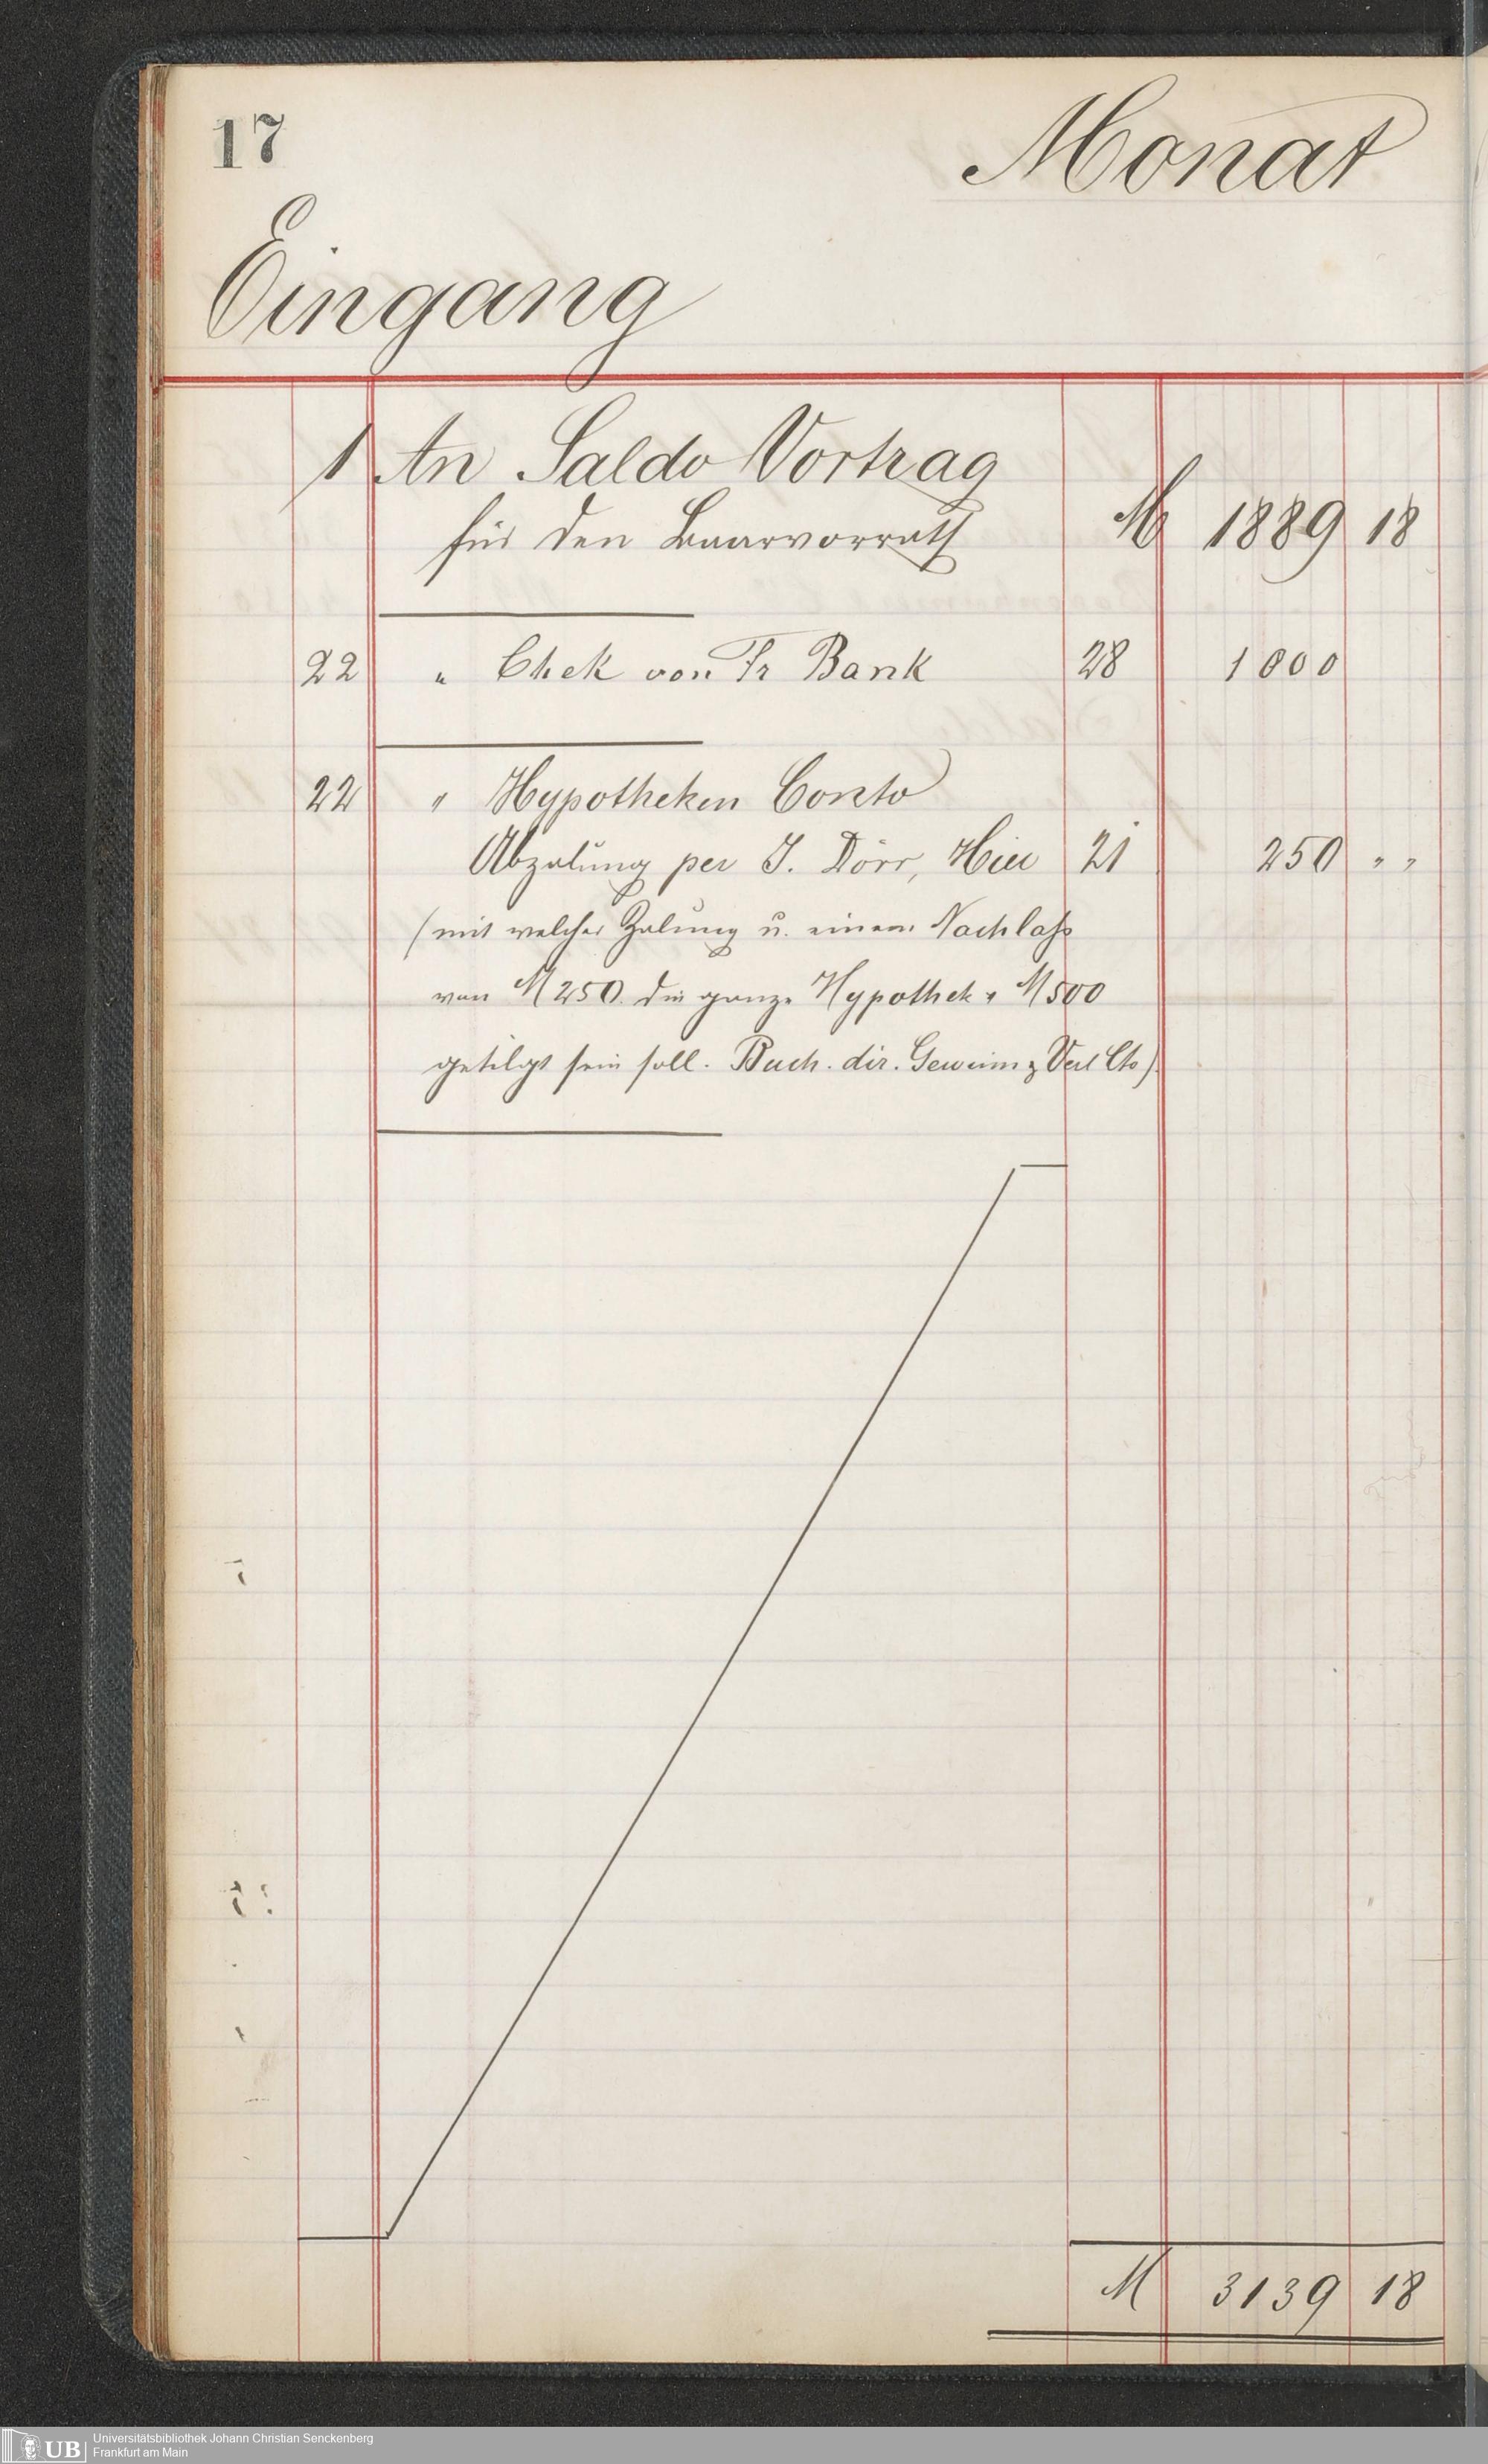 17
Monat
Eingang
1 An Saldo Vortrag
für den Baarvorrath M 1889 18
22 " Chek von Fr Bank 28 1000
22 " Hypotheken Conto
Abzalung per J. Dörr, Hier 21 250 " "
(mit welcher Zalung u. einem Nachlaß
von M 250. die ganze Hypothek " M 500
getilgt sein soll. Buch. dir. Gewinn & Verl Cto)
M 3139 18
UB Universitätsbibliothek Johann Christian Senckenberg
Frankfurt am Main